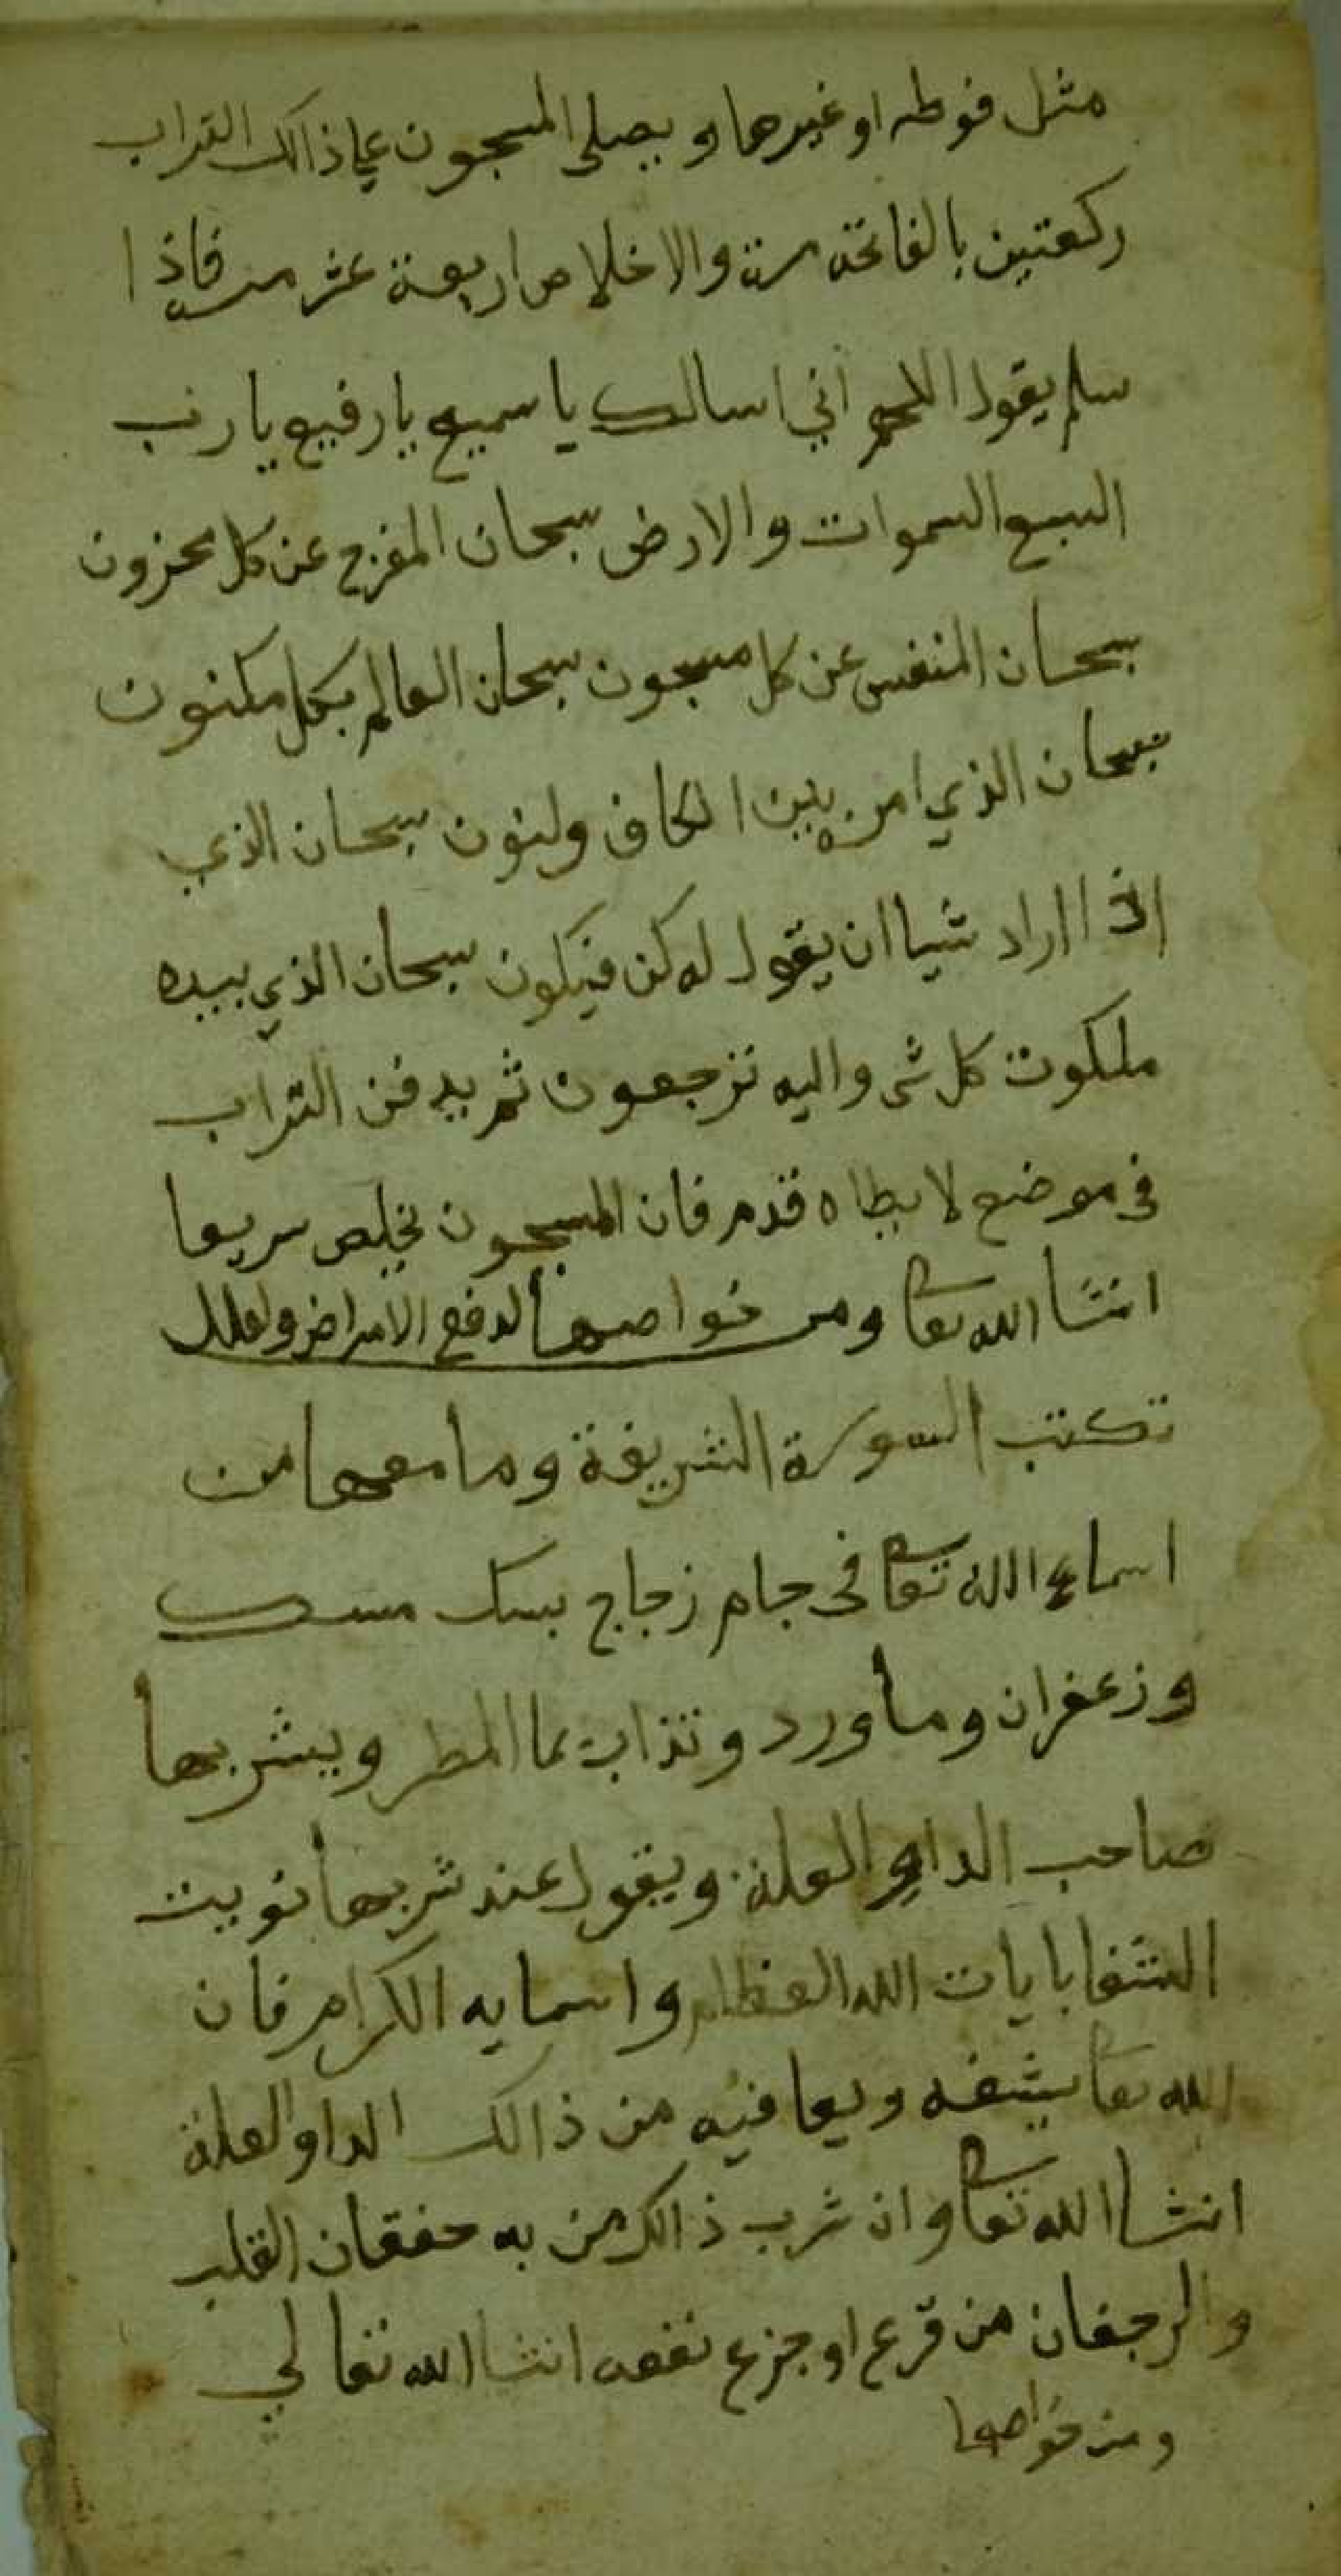 مثل فوطه او غيرها ويصلي المسجون علي ذالك التراب
ركعتين بالفاتحه مرة والاخلاص اربعة عشر مرة فاذا
سلم يقول اللهم اني اسالك يا سميع يا رفيع يا رب
السبع السموات والارض سبحان المفرج عن كل محزون
سبحان المنفس عن كل مسجون سبحان العالم بكل مكنون
سبحان الذي امره بين الكاف ولنون سبحان الذي
اذا اراد شيا ان يقول له كن فيكون سبحان الذي بيده
ملكوت كل شي واليه ترجعون ثم يدفن التراب
في موضع لا يطاه قدم فان المسجون يخلص سريعا
انشا الله تعا ومن خواصها لدفع الامراض ولعلل
تكتب السورة الشريفة وما معها من
اسماء الله تعا في جام زجاج بسك مسك
وزعفران وماورد وتذاب بما المطر ويشربها
صاحب الداو العلة ويقول عند شربها نويت
الشفا بايات الله العظام واسمايه الكرام فان
الله تعا يشفه ويعافيه من ذالك الداو العلة
انشا الله تعا وان شرب ذالك من به خفقان القلب
والرجفان من فزع او جزع نفعه انشا الله تعالي
ومن خواصها